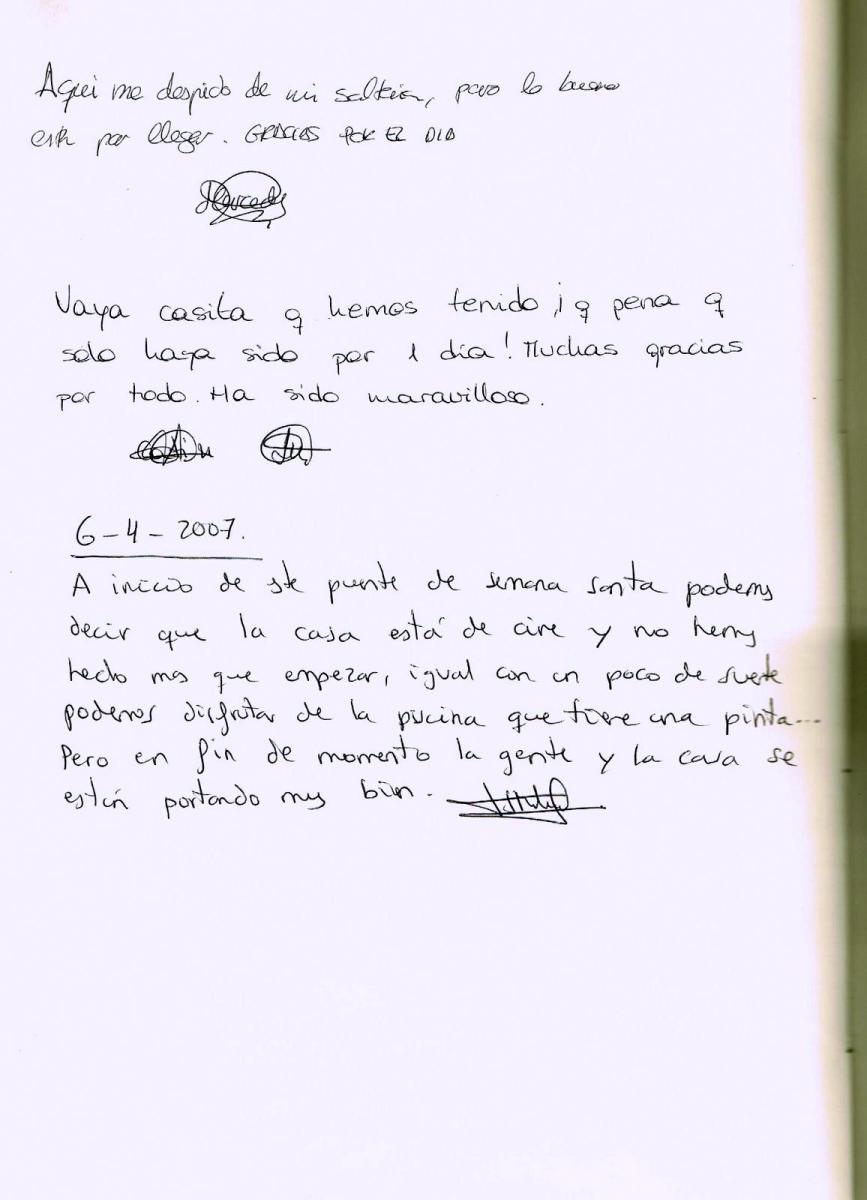 Aqui me despido de mi soltera, pero lo bueno
está por llegar. GRACIAS POR EL DIA
Mercedes
Vaya casita q hemos tenido, ¡q pena q
solo haya sido por 1 día! Muchas gracias
por todo. Ha sido maravilloso.
6-4-2007.
A inicio de este puente de semana santa podemos
decir que la casa está de cine y no hemos
hecho mas que empezar, igual con un poco de suerte
podemos disfrutar de la piscina que tiene una pinta...
Pero en fin de momento la gente y la casa se
están portando muy bien.